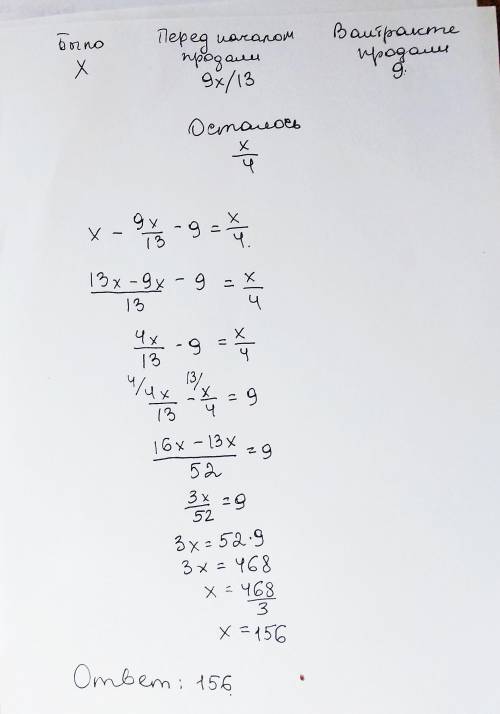 Было Перед началом продали В антракте продали
x 9x/13 9.
Осталось
x/4
x - 9x/13 - 9 = x/4.
13x - 9x/13 - 9 = x/4
4x/13 - 9 = x/4
4/ 4x/13 - 13/ x/4 = 9
16x - 13x/52 = 9
3x/52 = 9
3x = 52·9
3x = 468
x = 468/3
x = 156
Ответ: 156